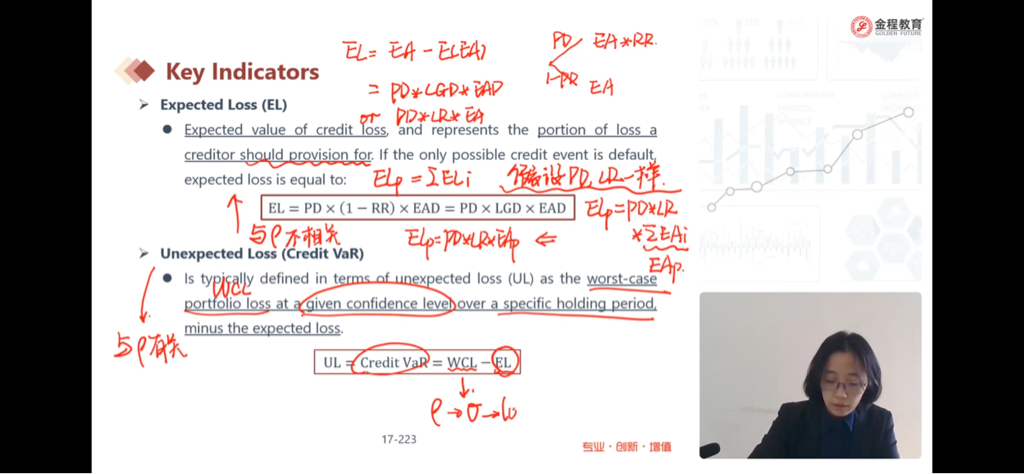 金程教育
GOLDEN FUTURE
EL = EA - E(EA)
PD EA*RR
1-PD EA
= PD*LGD*EAD
or PD*LR*EA
Key Indicators
Expected Loss (EL)
Expected value of credit loss, and represents the portion of loss a
creditor should provision for. If the only possible credit event is default,
expected loss is equal to:
ELp = ΣELi 假设PD, LR一样.
EL = PD × (1 − RR) × EAD = PD × LGD × EAD
ELp=PD*LR
*ΣEAi
EAp.
与ρ不相关
ELp=PD*LR*EAp ⇐
Unexpected Loss (Credit VaR)
Is typically defined in terms of unexpected loss (UL) as the worst-case
WCL
portfolio loss at a given confidence level over a specific holding period,
minus the expected loss.
与ρ有关
UL = Credit VaR = WCL − EL
ρ→σ→
17-223
专业·创新·增值